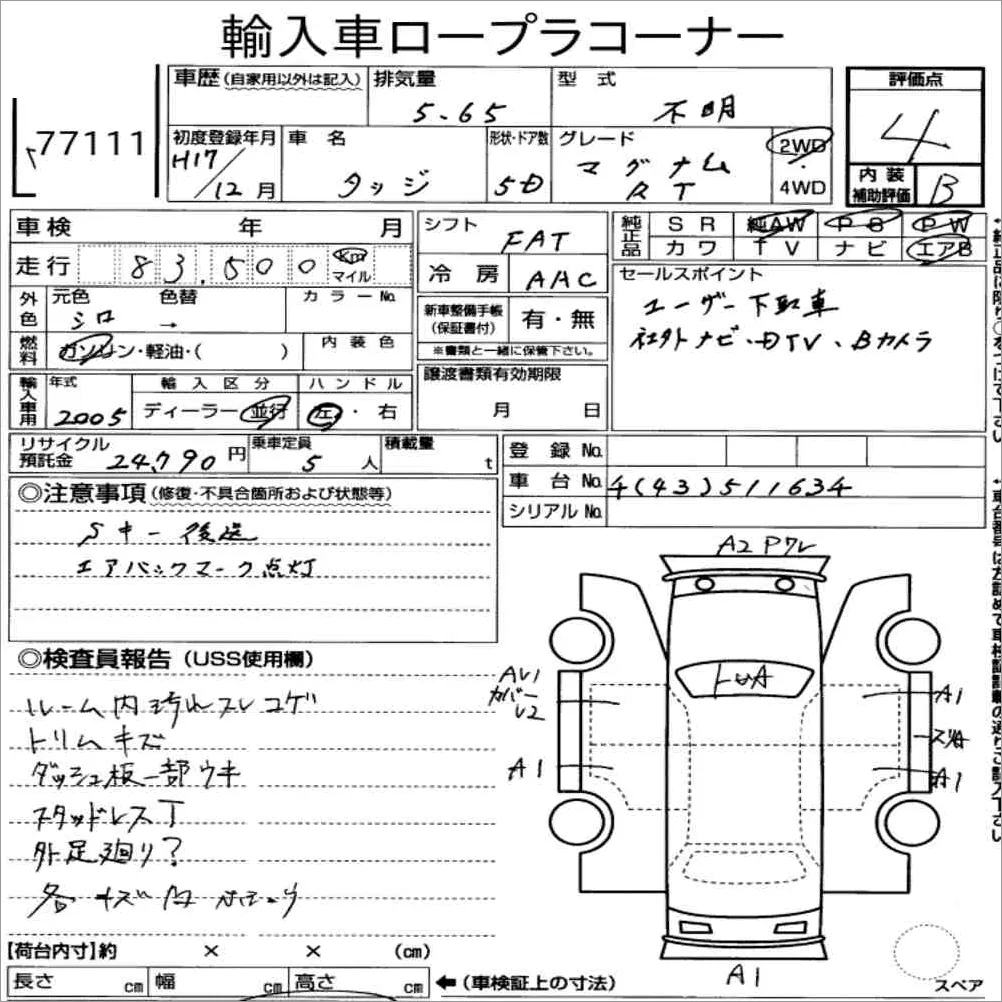 輸入車ロープラコーナー
77111
車歴(自家用以外は記入)
排気量
5.65
型式
不明
評価点
4
初度登録年月
H17/12月
車名
ダッジ
形状・ドア数
5D
グレード
マグナム
RT
2WD
・
4WD
内装
補助評価
B
車検 年 月
走行 83,500 Km マイル
シフト
FAT
冷房
AAC
純正品
SR 純AW PS PW
カワ TV ナビ エアB
外色
元色
シロ
色替
→
カラーNo.
燃料
ガソリン・軽油・( )
内装色
新車整備手帳
(保証書付)
有・無
※書類と一緒に保管下さい。
セールスポイント
ユーザー下取車
社外ナビ・DTV、Bカメラ
輸入車用
年式
2005
輸入区分
ディーラー 並行
ハンドル
左・右
譲渡書類有効期限
月 日
リサイクル
預託金
24,790円
乗車定員
5人
積載量
t
登録No.
車台No.
4(43)511634
シリアルNo.
◎注意事項(修復・不具合箇所および状態等)
Sキー後送
エアバックマーク点灯
◎検査員報告(USS使用欄)
ルーム内汚れスレコゲ
トリムキズ
ダッシュ板一部ウキ
スタッドレスT
外足廻り?
A2 Pワレ
AU1
カバー
A1
A1
A1
A1
スペア
【荷台内寸】約 × × (cm)
長さ cm 幅 cm 高さ cm
←(車検証上の寸法)